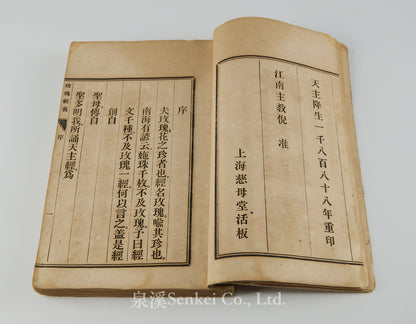 天主降生一千八百八十八年重印
江南主教倪 准
上海慈母堂活板
序
夫玫瑰花之珍者也經名玫瑰喻其珍也
南海有諺云施珠千枚不及玫瑰予曰經
文千種不及玫瑰一經何以言之蓋是經
創自
聖母傳自
聖多明我所誦天主經爲
玫瑰經義 序
泉溪Senkei Co., Ltd.